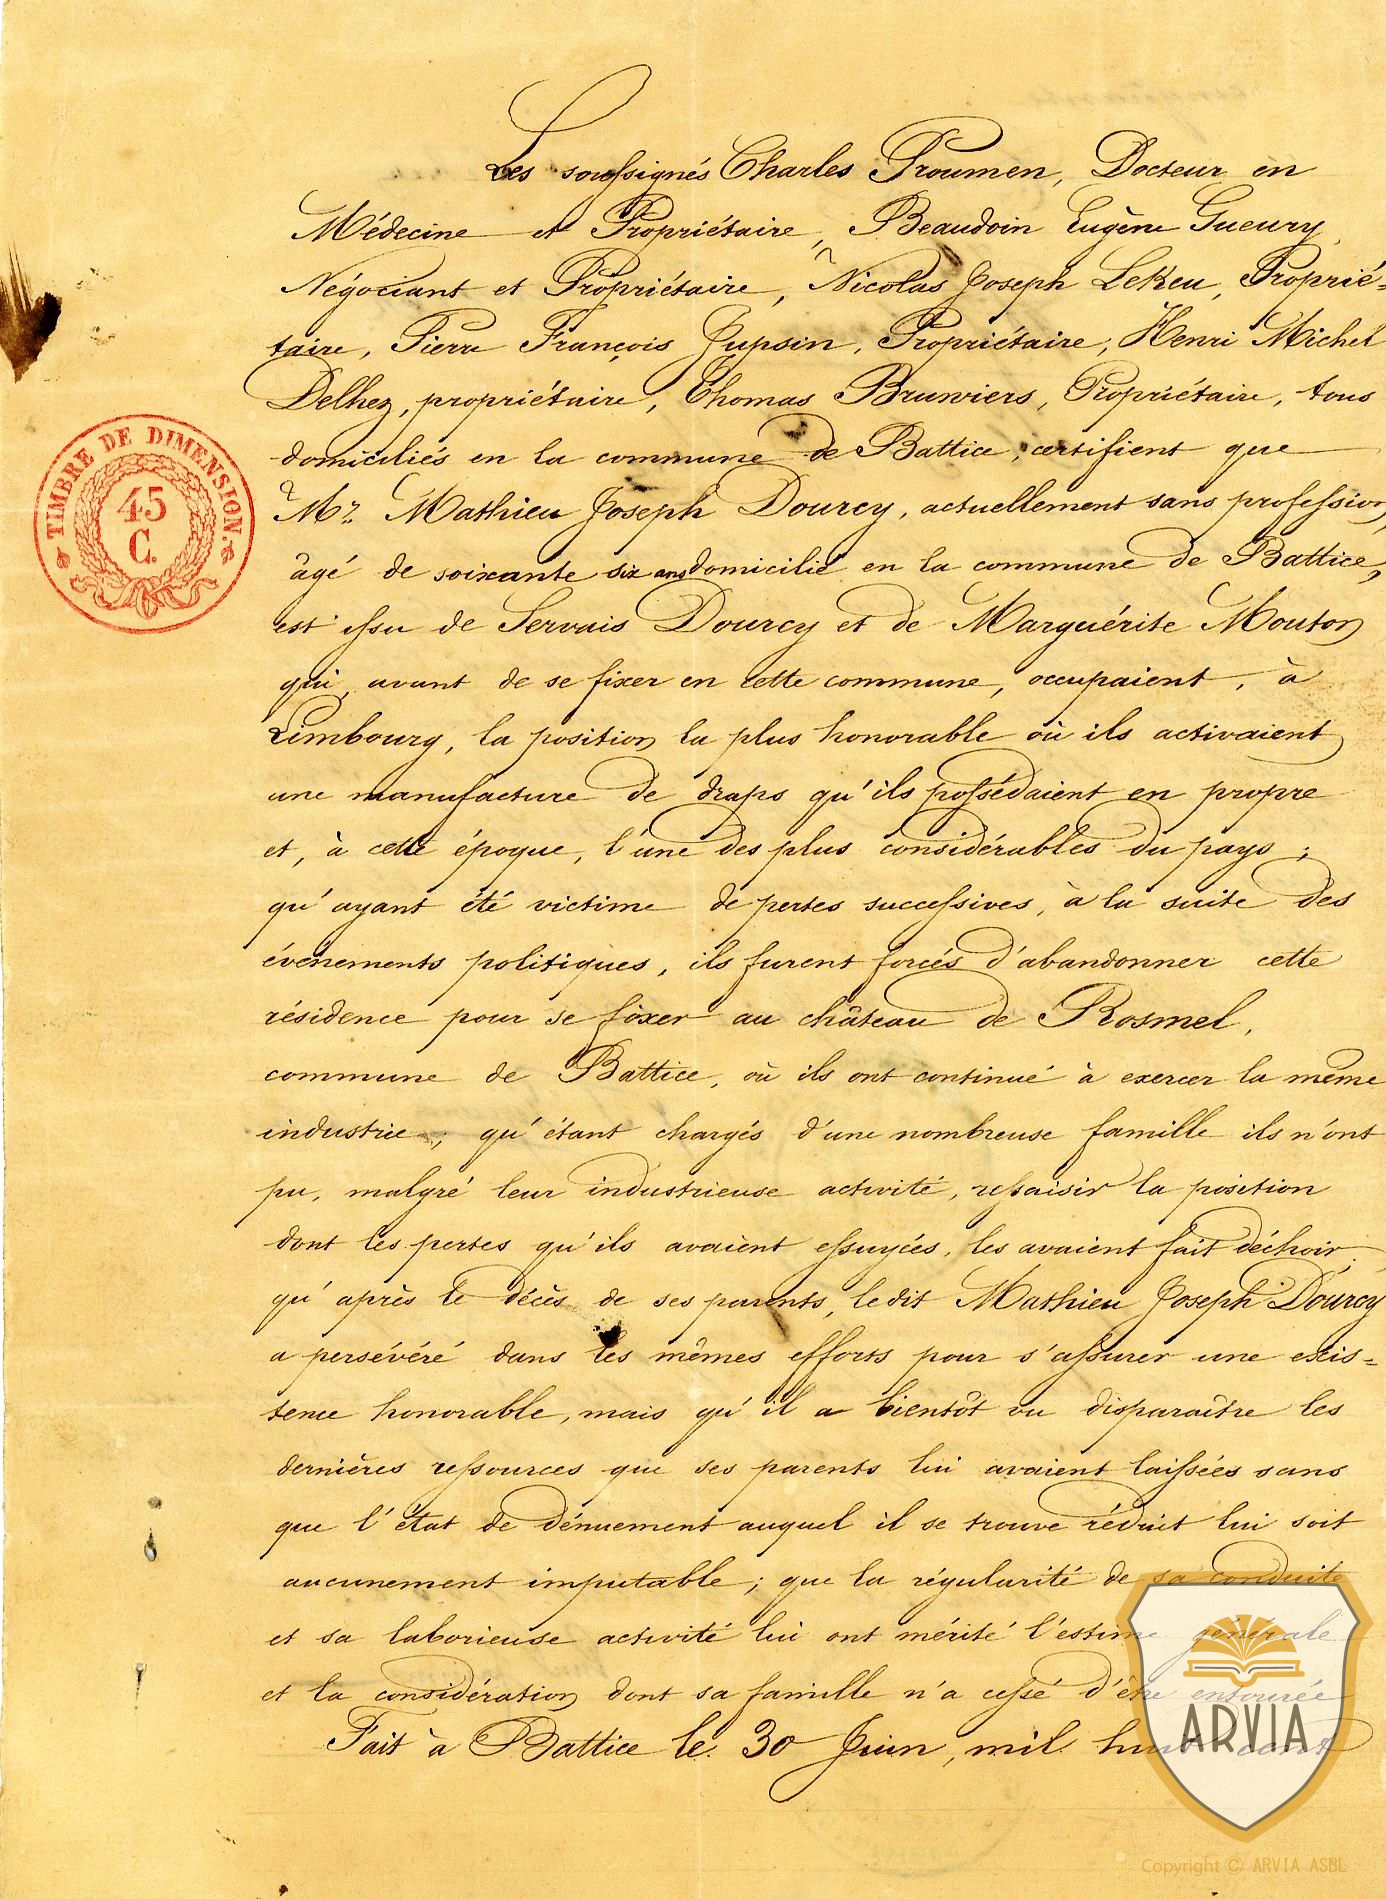 Les soussignés Charles Proumen, Docteur en
Médecine et Propriétaire, Beaudoin Eugène Gueury,
Négociant et Propriétaire, Nicolas Joseph LeKeu, Proprié=
taire, Pierre François Jupsin, Propriétaire, Henri Michel
Delhez, propriétaire, Thomas Bruwiers, Propriétaire, tous
domiciliés en la commune de Battice, certifient que
Mr. Mathieu Joseph Dourcy, actuellement sans profession,
âgé de soixante six ans domicilié en la commune de Battice,
est issu de Servais Dourcy et de Marguérite Mouton
qui, avant de se fixer en cette commune, occupaient, à
Limbourg, la position la plus honorable où ils activaient
une manufacture de draps qu'ils possédaient en propre
et, à cette époque, l'une des plus considérables du pays ;
qu'ayant été victime de pertes successives, à la suite des
événements politiques, ils furent forcés d'abandonner cette
résidence pour se fixer au château de Rosmel,
commune de Battice, où ils ont continué à exercer la même
industrie ; qu'étant chargés d'une nombreuse famille ils n'ont
pu, malgré leur industrieuse activité, ressaisir la position
dont les pertes qu'ils avaient essuyées, les avaient fait déchoir ;
qu'après le décès de ses parents, ledit Mathieu Joseph Dourcy
a persévéré dans les mêmes efforts pour s'assurer une exis=
tence honorable, mais qu'il a bientôt vu disparaître les
dernières ressources que ses parents lui avaient laissées sans
que l'état de dénuement auquel il se trouve réduit lui soit
aucunement imputable ; que la régularité de sa conduite
et sa laborieuse activité lui ont mérité l'estime générale
et la considération dont sa famille n'a cessé d'être entourée
Fait à Battice le 30 Juin, mil huit cent
TIMBRE DE DIMENSION.
45
C.
ARVIA
Copyright © ARVIA ASBL